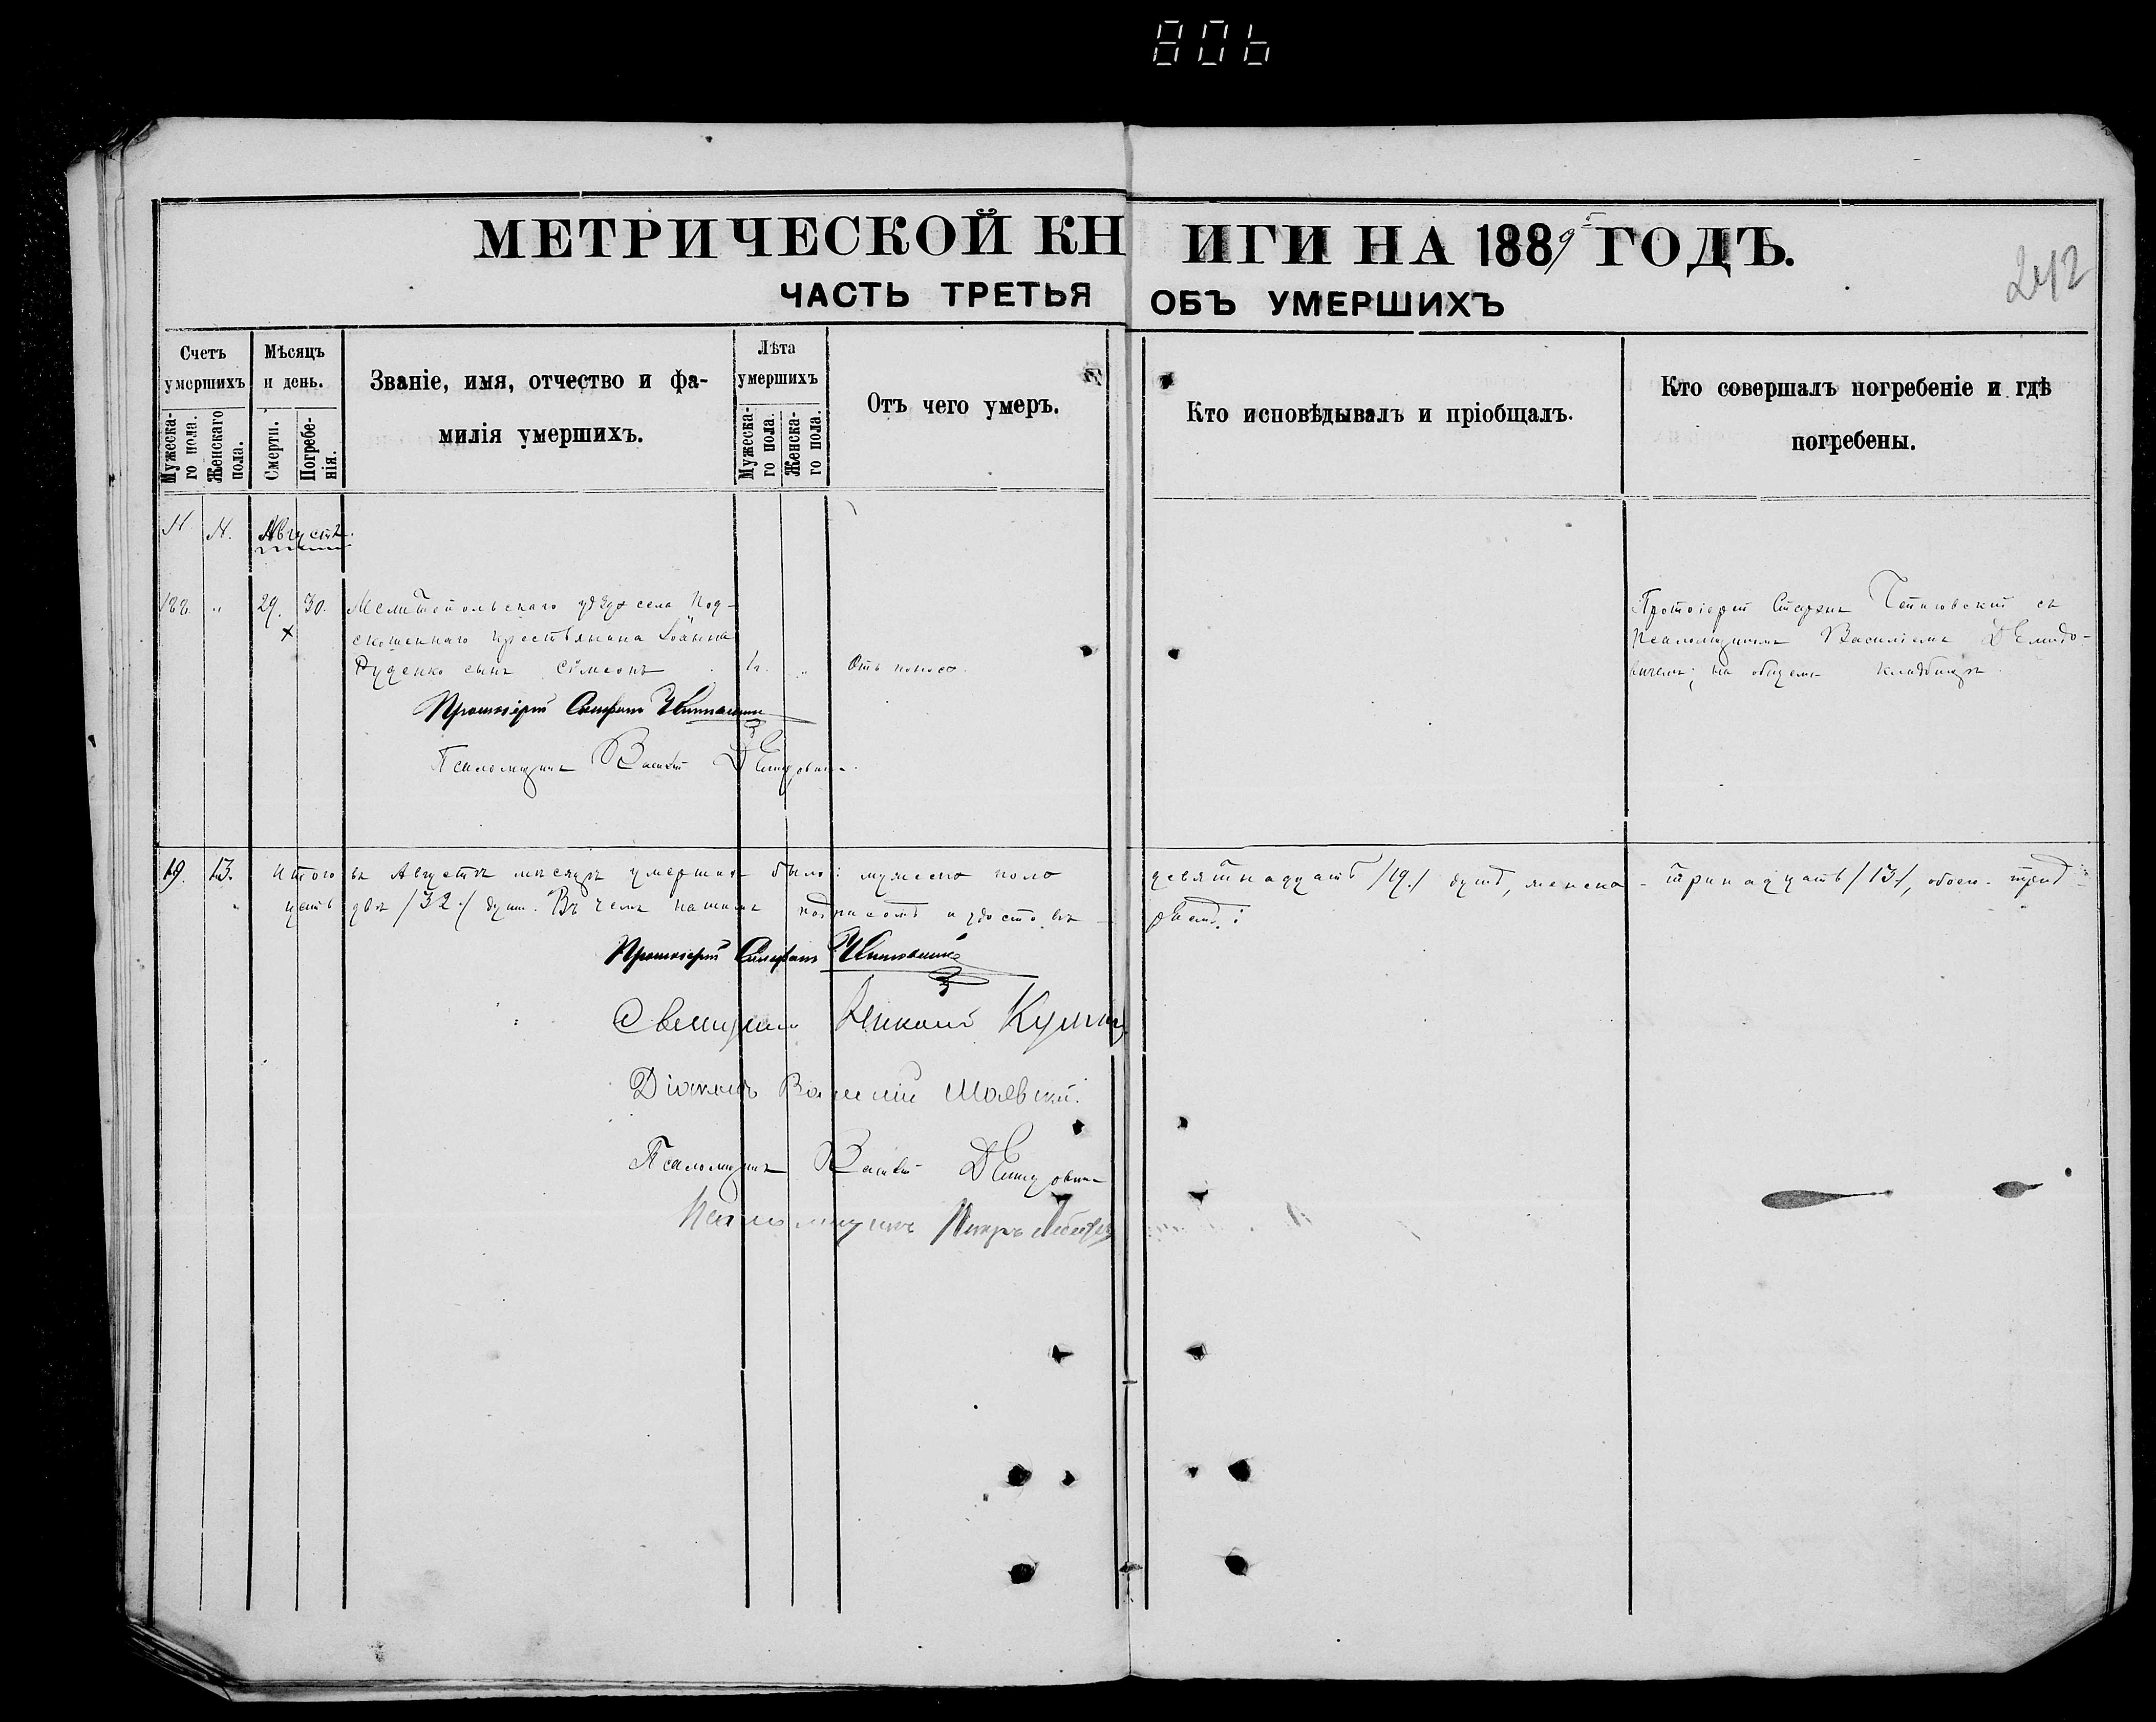 806
МЕТРИЧЕСКОЙ КНИГИ НА 1889 ГОДЪ.
242
ЧАСТЬ ТРЕТЬЯ ОБЪ УМЕРШИХЪ
Счетъ умершихъ
Мужеска-го пола.
Женскаго пола.
Мѣсяцъ и день.
Смерти.
Погребе-нія.
Званіе, имя, отчество и фа-
милія умершихъ.
Лѣта умершихъ
Мужеска-го пола.
Женска-го пола.
Отъ чего умеръ.
Кто исповѣдывалъ и пріобщалъ.
Кто совершалъ погребеніе и гдѣ
погребены.
Августъ.
29. 30. Мелитопольскаго уѣзда села Под-
крестьянина Іоанна
Руденко сынъ Симеонъ
Отъ поноса.
Протоіерей Стефанъ
Псаломщикъ Василій
Протоіерей Стефанъ съ
Псаломщикомъ Василіемъ Демидо-
вичемъ; на общемъ кладбищѣ.
19. 13. Итого въ Августѣ мѣсяцѣ умершихъ было: мужеска пола девятнадцать /19./ душъ, женска - тринадцать /13./, обоего трид-
цать два /32./ душъ. Въ чемъ нашимъ подписомъ и удостовѣ-
ряемъ:
Протоіерей Стефанъ
Священникъ Николай
Діаконъ Василій Маевскій.
Псаломщикъ Василій Демидовичъ
Псаломщикъ Петръ